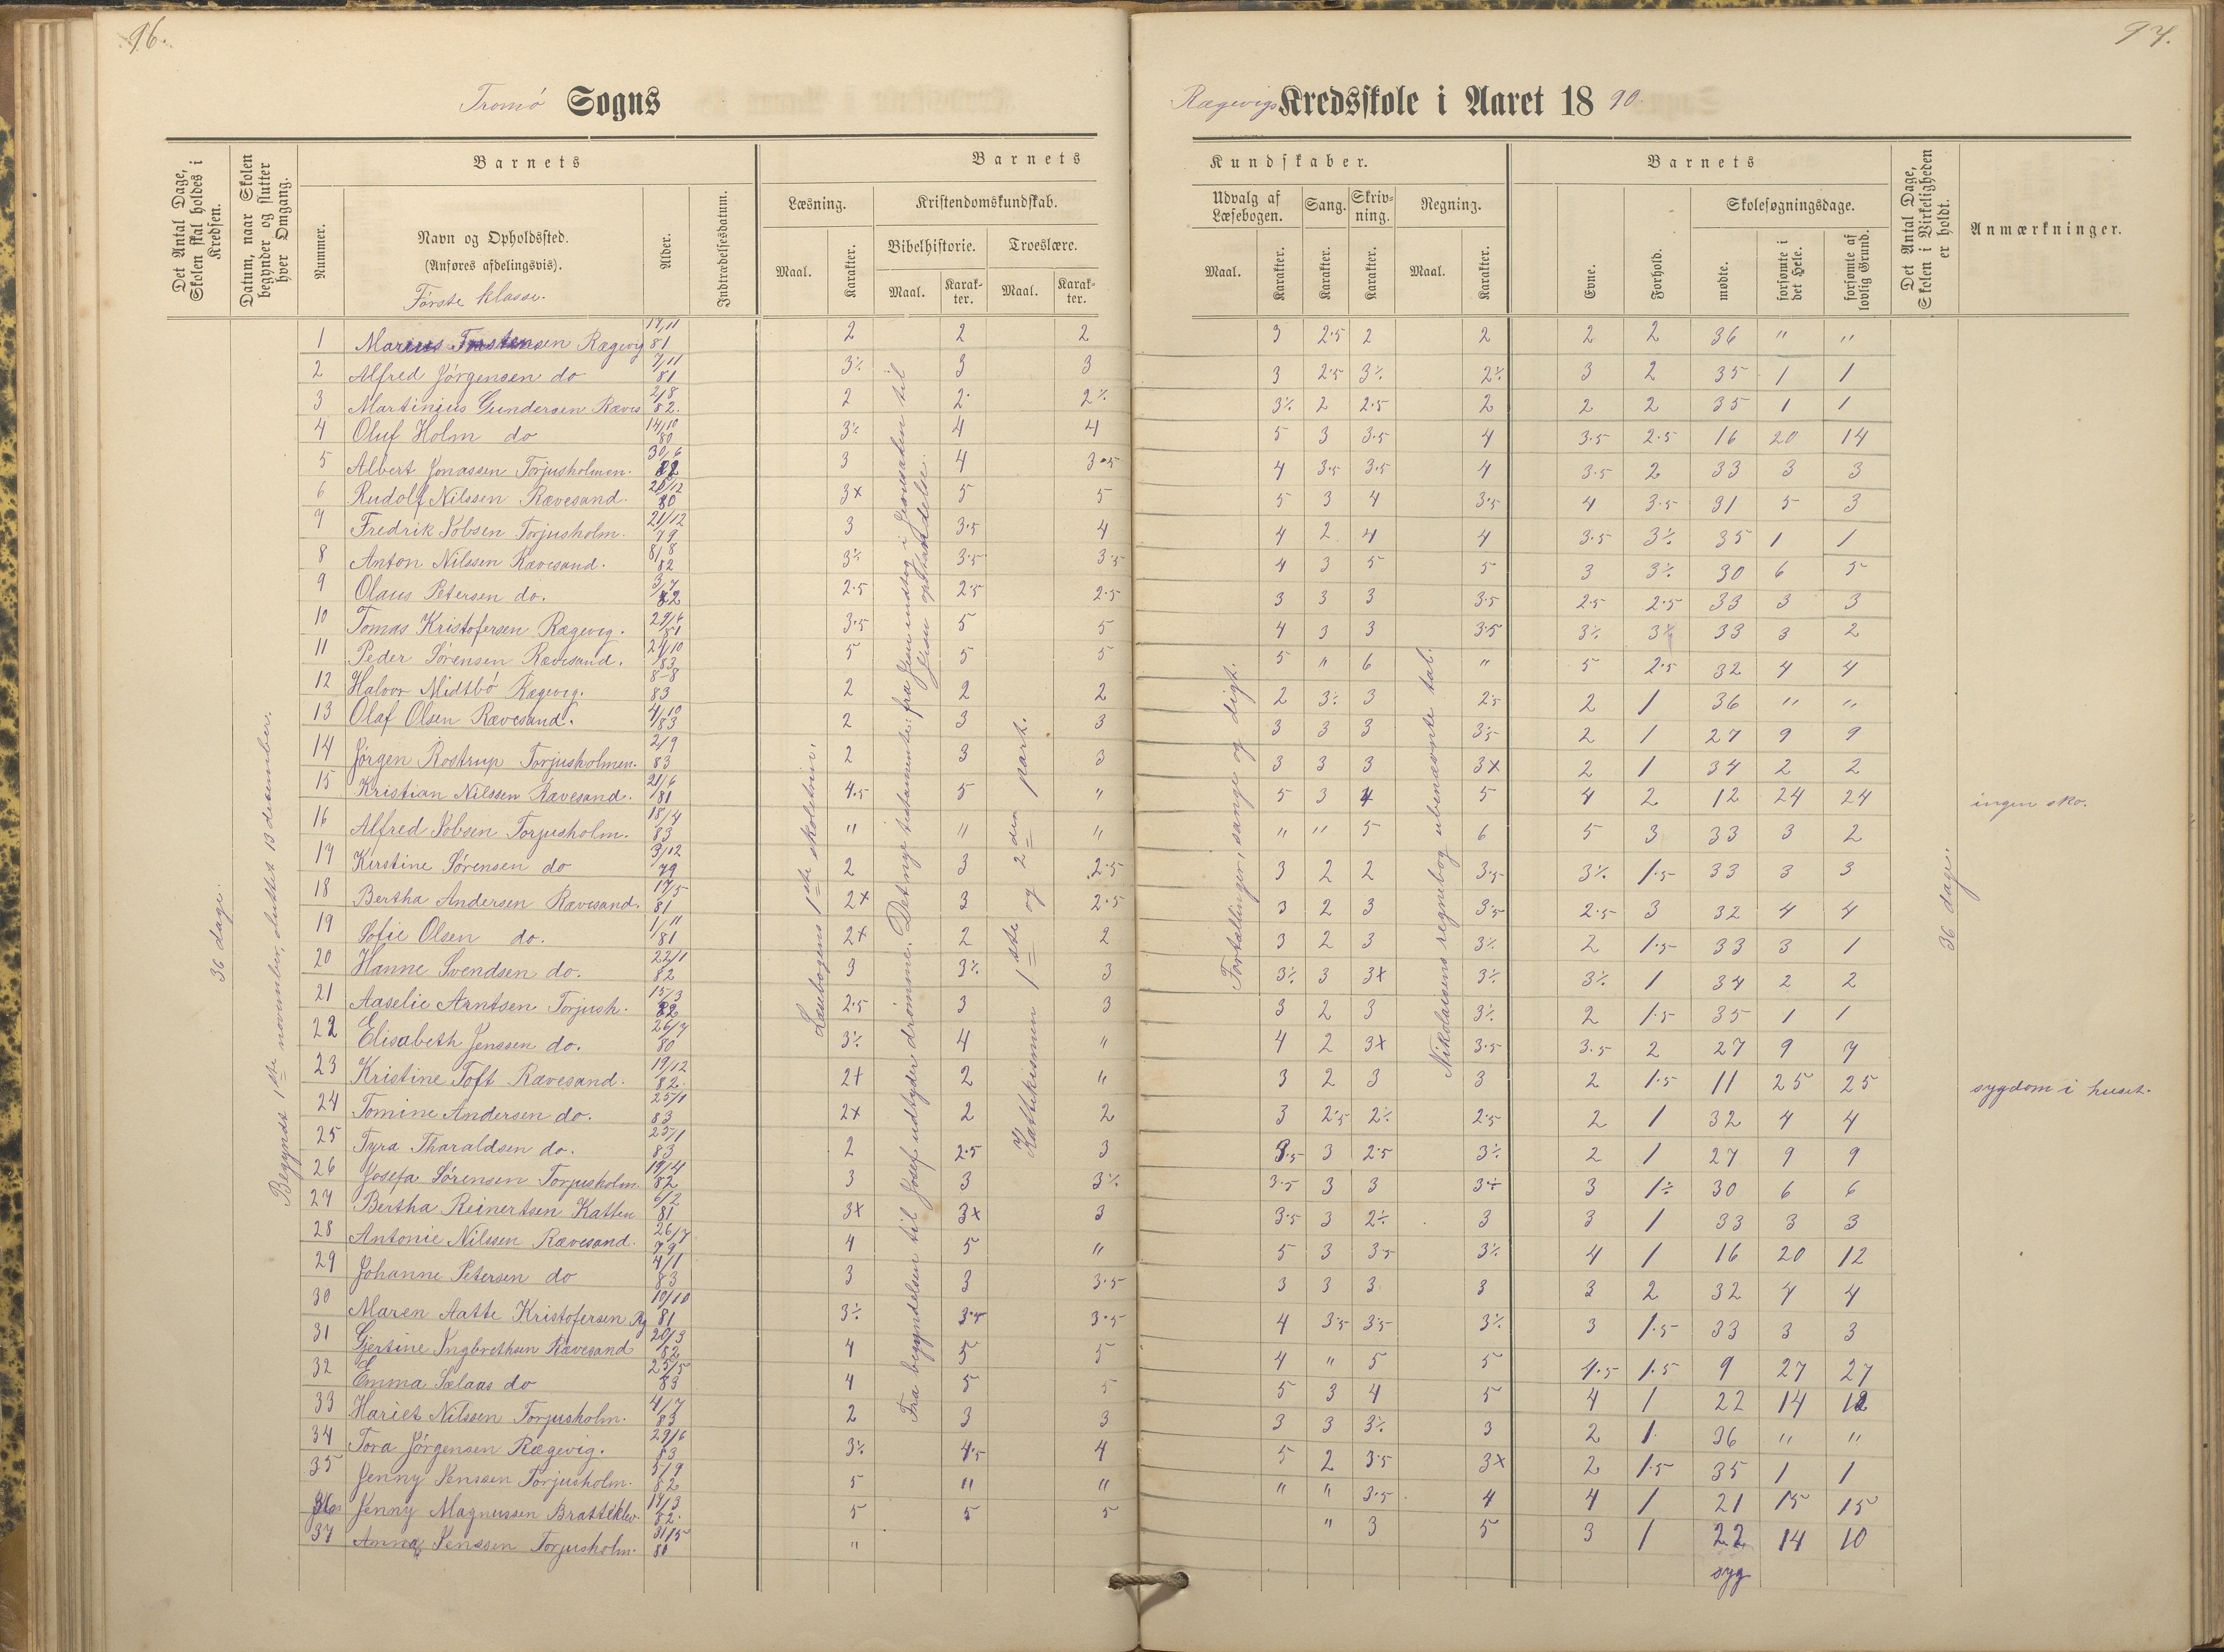 96.
Tromö Sogns
Det Antal Dage, Skolen skal holdes i Kredsen.
Datum, naar Skolen begynder og slutter hver Omgang.
Barnets
Nummer.
Navn og Opholdssted.
(Anføres afdelingsvis).
Første klasse.
Alder.
Indtrædelsesdatum.
Barnets
Læsning.
Maal.
Karakter.
Kristendomskundskab.
Bibelhistorie.
Maal.
Karakter.
Troeslære.
Maal.
Karakter.
36 dage.
Begyndt 1ste november, sluttet 13 desember.
Læsebogens 1ste skoletrin.
Fra begyndelsen til Josef udtyder drømme. Det nye testamente: fra Jesu indtog i Jerusalem til
Jesu opstandelse.
Katekismen 1ste og 2den part.
1 Marius Torstensen Rægevig 17/11 81 2 2 2
2 Alfred Jörgensen do 7/11 81 3÷ 3 3
3 Martinius Gundersen Ræves 2/8 82. 2 2 2÷
4 Oluf Holm do 14/10 80 3÷ 4 4
5 Albert Jonassen Torjusholmen. 30/6 82 3 4 3.5
6 Rudolf Nilssen Rævesand. 28/12 80 3x 5 5
7 Fredrik Jobsen Torjusholm. 21/12 79 3 3.5 4
8 Anton Nilssen Rævesand. 8/8 82 3÷ 3.5 3.5
9 Olaus Petersen do. 3/7 82 2.5 2.5 2.5
10 Tomas Kristofersen Rægevig. 29/6 81 3.5 5 5
11 Peder Sørensen Rævesand. 21/10 83 5 5 5
12 Halvor Midtbö Rægevig. 8-8 83 2 2 2
13 Olaf Olsen Rævesand. 4/10 83 2 3 3
14 Jörgen Rostrup Torjusholmen. 2/9 83 2 3 3
15 Kristian Nilssen Rævesand. 21/6 81 4.5 5 "
16 Alfred Jobsen Torjusholm. 18/4 83 " " "
17 Kirstine Sørensen do 3/12 79 2 3 2.5
18 Bertha Andersen Rævesand. 17/5 81 2x 3 2.5
19 Sofie Olsen do. 1/11 81 2x 2 2
20 Hanne Svendsen do. 22/1 82 3 3÷ 3
21 Aaselie Arntsen Torjush. 15/3 82 2.5 3 3
22 Elisabeth Jenssen do. 26/7 80 3÷ 4 "
23 Kristine Toft Rævesand. 19/12 82. 2x 2 "
24 Tomine Andersen do. 25/1 83 2x 2 2
25 Tyra Tharaldsen do. 23/1 83 2 2.5 3
26 Josefa Sørensen Torjusholm. 19/4 82 3 3 3÷
27 Bertha Reinertsen Katten 6/2 81 3x 3x 3
28 Antonie Nilssen Rævesand. 26/7 79 4 5 "
29 Johanne Petersen do 4/1 83 3 3 3.5
30 Maren Aatte Kristofersen Rg 10/10 81 3÷ 3.5 3.5
31 Gjertine Ingbrethsen Rævesand 20/3 82 4 5 5
32 Emma Sælaas do 25/5 83 4 5 5
33 Hariet Nilssen Torjusholm. 4/7 83 2 3 3
34 Tora Jörgensen Rægevig. 29/6 83 3÷ 4.5 4
35 Jenny Jenssen Torjusholm. 5/9 82 5 " "
36 Jenny Magnussen Bratteklev. 14/3 82. 5 5 5
37 Anna Jenssen Torjusholm. 31/5 80 "
97.
Rægevigs Kredsskole i Aaret 1890.
Kundskaber.
Udvalg af Læsebogen.
Maal.
Karakter.
Sang.
Karakter.
Skrivning.
Karakter.
Regning.
Maal.
Karakter.
Barnets
Evne.
Forhold.
Skolesøgningsdage.
mødte.
forsømte i det Hele.
forsømte af lovlig Grund.
Det Antal Dage, Skolen i Virkeligheden er holdt.
Anmærkninger.
Fortællinger, sange og digt.
Nikolaisens regnebog ubenævnte tal.
36 dage.
3 2.5 2 2 2 2 36 " "
3 2.5 3÷ 2÷ 3 2 35 1 1
3÷ 2 2.5 2 2 2 35 1 1
5 3 3.5 4 3.5 2.5 16 20 14
4 3.5 3.5 4 3.5 2 33 3 3
5 3 4 3.5 4 3.5 31 5 3
4 2 4 4 3.5 3÷ 35 1 1
4 3 5 5 3 3÷ 30 6 5
3 3 3 3.5 2.5 2.5 33 3 3
4 3 3 3.5 3÷ 3÷ 33 3 2
5 " 6 " 5 2.5 32 4 4
2 3÷ 3 2.5 2 1 36 " "
3 3 3 3.5 2 1 27 9 9
3 3 3 3x 2 1 34 2 2
5 3 4 5 4 2 12 24 24 ingen sko.
" " 5 6 5 3 33 3 2
3 2 2 3.5 3÷ 1.5 33 3 3
3 2 3 3.5 2.5 3 32 4 4
3 2 3 3÷ 2 1.5 33 3 1
3÷ 3 3x 3÷ 3÷ 1 34 2 2
3 2 3 3÷ 2 1.5 35 1 1
4 2 3x 3.5 3.5 2 27 9 7
3 2 3 3 2 1.5 11 25 25 sygdom i huset.
3 2.5 2÷ 2.5 2 1 32 4 4
3.5 3 2.5 3÷ 2 1 27 9 9
3.5 3 3 3÷ 3 1÷ 30 6 6
3.5 3 2÷ 3 3 1 33 3 3
5 3 3.5 3÷ 4 1 16 20 12
3 3 3 3 3 2 32 4 4
4 3.5 3.5 3÷ 3 1.5 33 3 3
4 " 5 5 4.5 1.5 9 27 27
5 3 4 5 4 1 22 14 12
3 3 3÷ 3 2 1 36 " "
5 2 3.5 3x 2 1.5 35 1 1
" " 3.5 4 4 1 21 15 15
" 3 5 3 1 22 14 10
syg